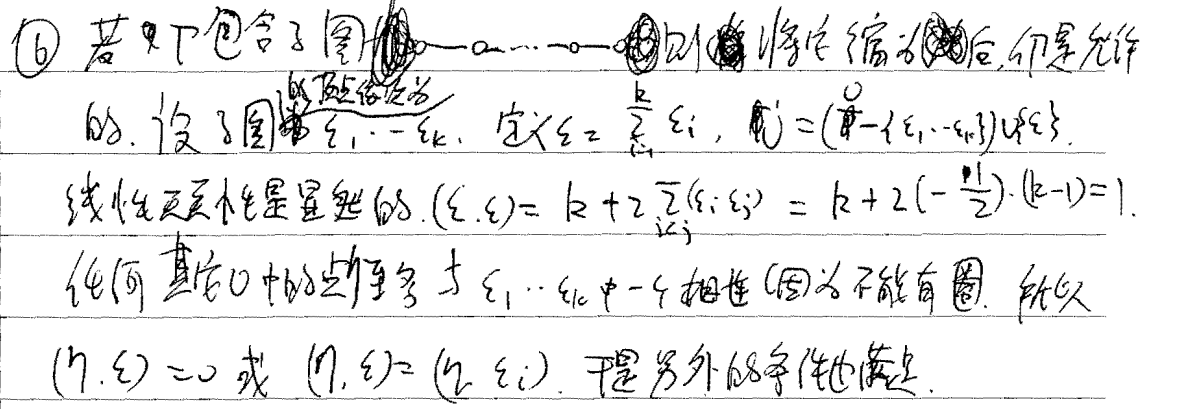 ⑥ 若 Γ 包含子图 o—o…o—o 则将它缩为点后,仍是允许
的. 设子图的顶点依次为 ε₁…εₖ. 定义 ε = Σᵢ₌₁ᵏ εᵢ, U' = (U-{ε₁…εₖ})∪{ε}.
线性无关性是显然的. (ε.ε) = k+2Σ_{i<j}(εᵢ εⱼ) = k+2(-1/2)·(k-1)=1.
任何其它U中的点η至多与 ε₁…εₖ 中一个相连(因为不能有圈. 所以
(η.ε)=0 或 (η.ε)=(η. εᵢ). 于是另外的条件也满足.